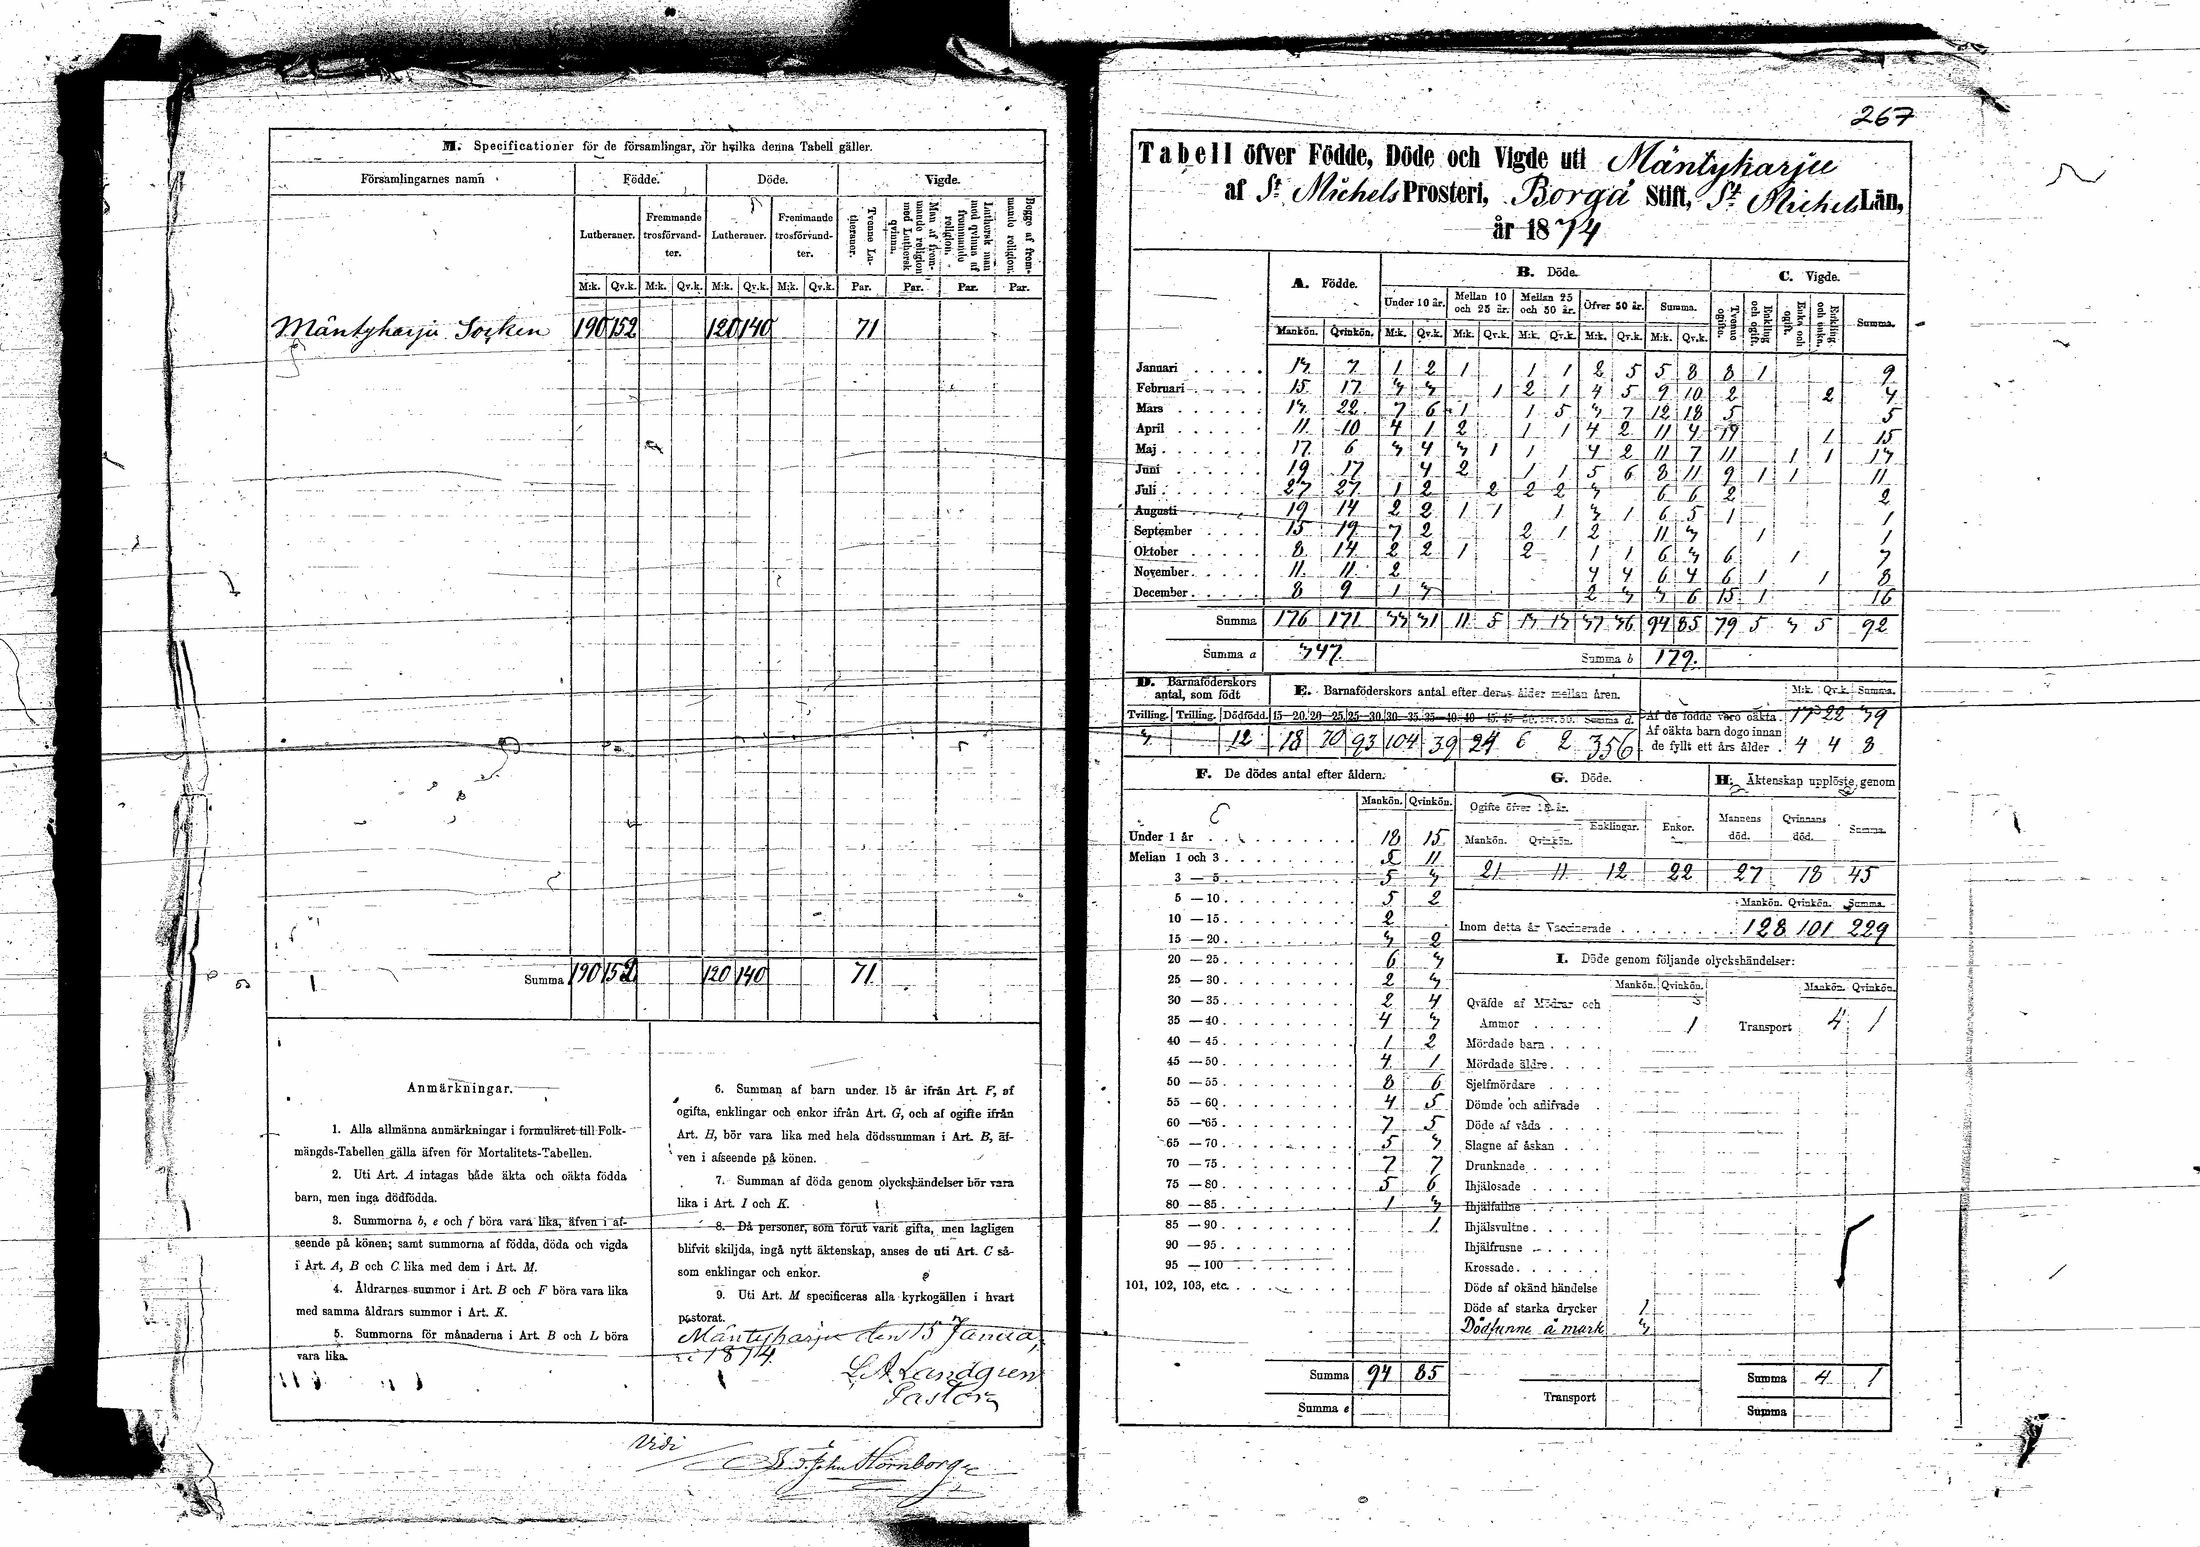 M. Specificationer för de församlingar, för hvilka denna Tabell gäller.
Församlingarnes namn Födde. Döde. Vigde.
Lutheraner. Fremmande trosförvandter. Lutheraner. Fremmande trosförvandter. Tvenne Lutheraner. Man af frommande religion med Luthersk qvinna. Luthersk man med qvinna af frommande religion. Begge af frommande religion.
M:k. Qv.k. M:k. Qv.k. M:k. Qv.k. M:k. Qv.k. Par. Par. Par. Par.
Mäntyharju Socken 190 152 120 140 71
Summa 190 152 120 140 71
Anmärkningar.
1. Alla allmänna anmärkningar i formuläret till Folk-
mängds-Tabellen gälla äfven för Mortalitets-Tabellen.
2. Uti Art. A intagas både äkta och oäkta födda
barn, men inga dödfödda.
3. Summorna b, e och f böra vara lika, äfven i af-
seende på könen; samt summorna af födda, döda och vigda
i Art. A, B och C lika med dem i Art. M.
4. Åldrarnes summor i Art. B och F böra vara lika
med samma åldrars summor i Art. K.
5. Summorna för månaderna i Art. B och L böra
vara lika.
6. Summan af barn under 15 år ifrån Art. F, af
ogifta, enklingar och enkor ifrån Art. G, och af ogifte ifrån
Art. H, bör vara lika med hela dödssumman i Art. B, äf-
ven i afseende på könen.
7. Summan af döda genom olyckshändelser bör vara
lika i Art. I och K.
8. Då personer, som förut varit gifta, men lagligen
blifvit skiljda, ingå nytt äktenskap, anses de uti Art. C så-
som enklingar och enkor.
9. Uti Art. M specificeras alla kyrkogällen i hvart
pastorat.
Mäntyharju den 15 Janua,
ri 1874.
L A Landgren
Pastor
Vidi
John Hornborg
267
Tabell öfver Födde, Döde och Vigde uti Mäntyharju
af St Michels Prosteri, Borgå Stift, St Michels Län,
år 1874
A. Födde. B. Döde. C. Vigde.
Under 10 år. Mellan 10 och 25 år. Mellan 25 och 50 år. Öfver 50 år. Summa. Tvenne ogifte. Enkling och ogift. Enka och ogift. Enkling och enka. Summa.
Mankön. Qvinkön. M:k. Qv.k. M:k. Qv.k. M:k. Qv.k. M:k. Qv.k. M:k. Qv.k.
Januari 13 7 1 2 1 1 1 2 5 5 8 8 1 9
Februari 15 17 3 3 1 2 1 4 5 9 10 2 2 4
Mars 13 22 7 6 1 1 5 3 7 12 18 5 5
April 11 10 4 1 2 1 1 4 2 11 4 14 1 15
Maj 17 6 3 4 3 1 1 4 2 11 7 11 1 1 13
Juni 19 17 4 2 1 1 5 6 8 11 9 1 1 11
Juli 27 27 1 2 2 2 2 3 6 6 2 2
Augusti 19 14 2 2 1 1 1 3 1 6 5 1 1
September 15 19 7 2 2 1 2 11 3 1 1
Oktober 8 14 2 2 1 2 1 1 6 3 6 1 7
November 11 11 2 4 4 6 4 6 1 1 8
December 8 9 1 3 2 3 3 6 15 1 16
Summa 176 171 33 31 11 5 13 13 37 36 94 85 79 5 3 5 92
Summa a 347. Summa b 179.
D. Barnaföderskors antal, som födt
E. Barnaföderskors antal efter deras ålder mellan åren.
M:k. Qv.k. Summa.
Tvilling. Trilling. Dödfödd. 15—20. 20—25. 25—30. 30—35. 35—40. 40—45. 45—50. Summa
3 12 18 70 93 104 39 24 6 2 356
Af de födde voro oäkta 17 22 39
Af oäkta barn dogo innan
de fyllt ett års ålder 4 4 8
F. De dödes antal efter åldern.
Mankön. Qvinkön.
Under 1 år 18 15
Mellan 1 och 3 5 11
3 — 5 5 3
5 — 10 5 2
10 — 15 2
15 — 20 3 2
20 — 25 6 3
25 — 30 2 3
30 — 35 2 4
35 — 40 4 3
40 — 45 1 2
45 — 50 4 1
50 — 55 8 6
55 — 60 4 5
60 — 65 7 5
65 — 70 5 3
70 — 75 7 7
75 — 80 5 6
80 — 85 1 3
85 — 90 1
90 — 95
95 — 100
101, 102, 103, etc.
Summa 94 85
Summa e
G. Döde.
Ogifte öfver 15 år. Enklingar. Enkor.
Mankön. Qvinkön.
21 11 12 22
H. Äktenskap upplöste genom
Mannens död. Qvinnans död. Summa.
27 18 45
Mankön. Qvinkön. Summa.
Inom detta år Vaccinerade 128 101 229
I. Döde genom följande olyckshändelser:
Mankön. Qvinkön. Mankön. Qvinkön.
Qväfde af Mödrar och
Ammor 1 Transport 4 1
Mördade barn
Mördade äldre
Sjelfmördare
Dömde och aflifvade
Döde af våda
Slagne af åskan
Drunknade
Ihjälosade
Ihjälfallne
Ihjälsvultne
Ihjälfrusne
Krossade
Döde af okänd händelse
Döde af starka drycker 1
Dödfunne å mark 3
Summa 4 1
Transport
Summa